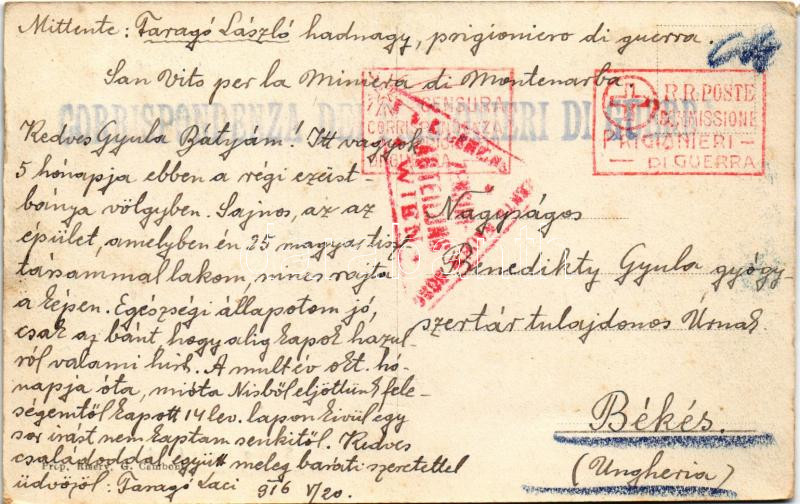 Mittente: Faragó László hadnagy, prigioniero di guerra.
San Vito per la Miniera di Montenarba
CORRISPONDENZA DEI PRIGIONIERI DI GUERRA
CENSURA
R.R. POSTE
COMMISSIONE
PRIGIONIERI
DI GUERRA
ZENSUR
ABTEILUNG
WIEN
Kedves Gyula Bátyám! Itt vagyok
5 hónapja ebben a régi ezüst-
bánya völgyben. Sajnos, az az
épület, amelyben én 25 magyar tiszt
társammal lakom, nincs rajta
a képen. Egészségi állapotom jó,
csak az bánt, hogy alig kapok hazul-
ról valami hírt. A mult év okt. hó-
napja óta, mióta Nisből eljöttünk fele-
ségemtől kapott 14 lev. lapon kivül egy
sor irást nem kaptam senkitől. Kedves
családoddal együtt meleg baráti szeretettel
üdvözöl: Faragó Laci 916 V/20.
Nagyságos
Benedikty Gyula gyógy-
szertártulajdonos Úrnak
Békés.
(Ungheria)